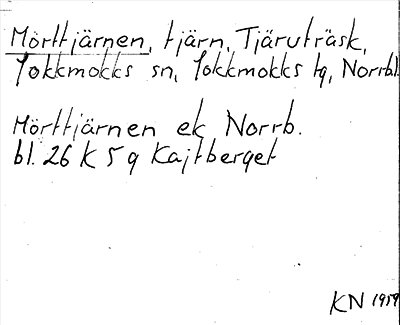 Mörttjärnen, tjärn, Tjäruträsk,
Jokkmokks sn, Jokkmokks tg, Norrbl.
Mörttjärnen ek Norrb.
bl. 26 K 5 g Kajtberget
KN 1959